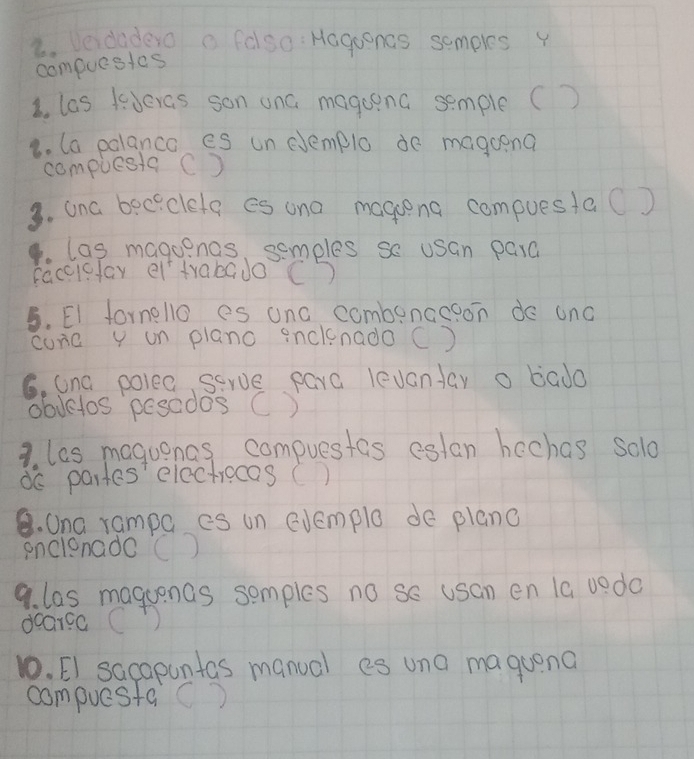 2. Verdadero o falso: Maquinas simples y
compuestas
1. las tijeras son una maquina simple ( )
2. la palanca es un ejemplo de maquina
compuesta ( )
3. una bicicleta es una maquina compuesta ( )
4. las maquinas simples se usan para
facilitar el trabajo ( )
5. El tornillo es una combinacion de una
cuña y un plano inclinado ( )
6. una polea sirve para levantar o bajo
objetos pesados ( )
7. las maquinas compuestas estan hechas solo
de partes electricas ( )
8. Una rampa es un ejemplo de plano
inclinado ( )
9. las maquinas simples no se usan en la vida
diaria ( )
10. El sacapuntas manual es una maquina
compuesta ( )